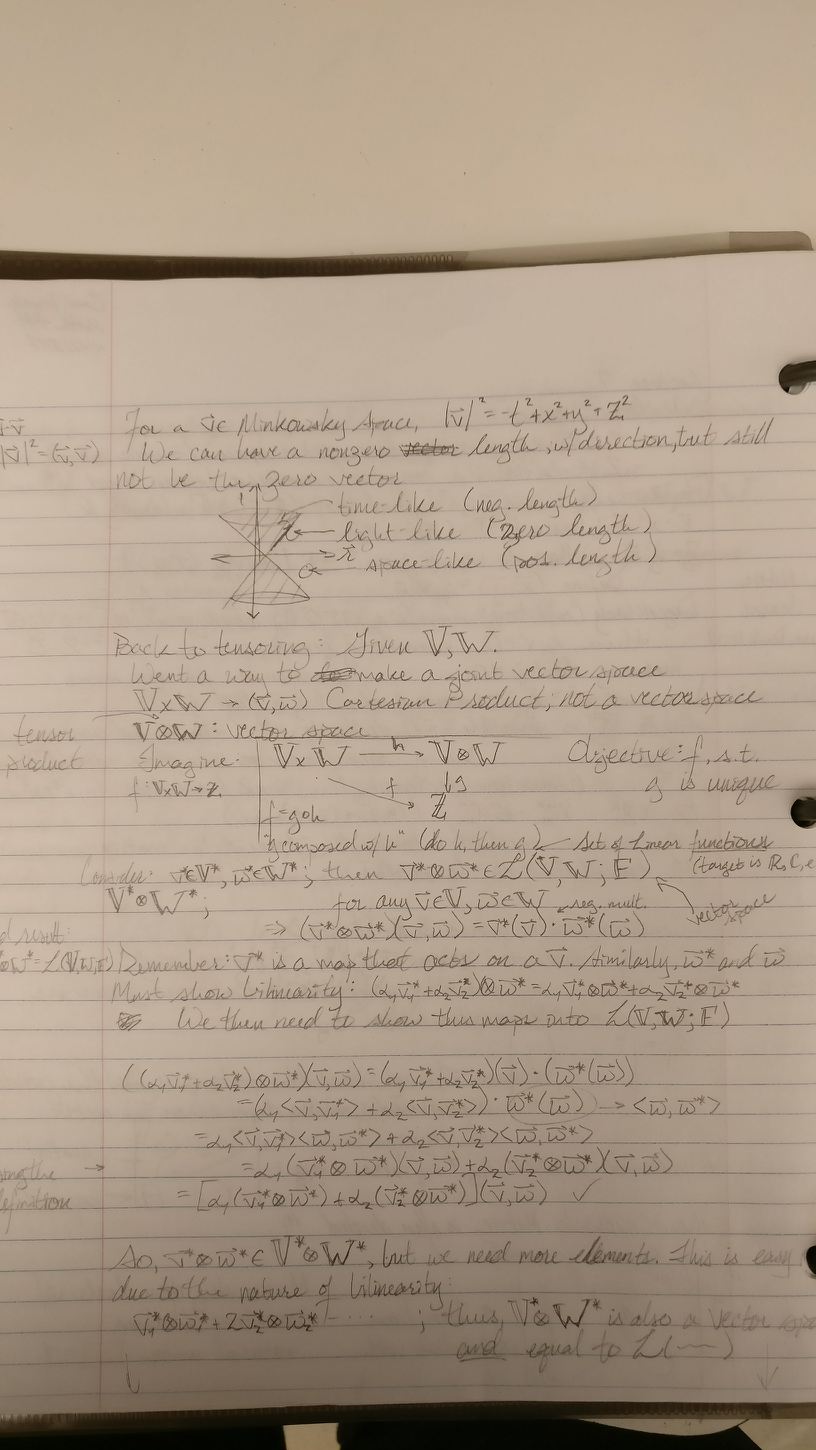 For a v⃗ ∈ Minkowsky Space, |v⃗|² = -t²+x²+y²+z²
|v⃗|² = (v⃗,v⃗)
We can have a nonzero vector length, w/ direction, but still
not be the zero vector
time-like (neg. length)
light-like (zero length)
space-like (pos. length)
Back to tensoring: Given 𝕍,𝕎.
Want a way to do make a joint vector space
𝕍×𝕎 → (v⃗,w⃗) Cartesian Product; not a vector space
tensor product
𝕍⊗𝕎 : vector space
Imagine: 𝕍×𝕎 —h→ 𝕍⊗𝕎 Objective: f, s.t.
f: 𝕍×𝕎→ℤ f ↓g g is unique
ℤ
f=g∘h
"g composed w/ h" (do h, then g) set of linear functions
Consider: v⃗*∈𝕍*, w⃗*∈𝕎*; then v⃗*⊗w⃗* ∈ ℒ(𝕍,𝕎;𝔽) (target is ℝ,ℂ,
𝕍*⊗𝕎*; for any v⃗∈𝕍, w⃗∈𝕎 reg. mult. vector space
⇒ (v⃗*⊗w⃗*)(v⃗,w⃗) = v⃗*(v⃗)·w⃗*(w⃗)
result:
⊗𝕎*=ℒ(𝕍,𝕎;𝔽) Remember: v⃗* is a map that acts on a v⃗. Similarly, w⃗* and w⃗
Must show bilinearity: (α₁v⃗₁*+α₂v⃗₂*)⊗w⃗* = α₁v⃗₁*⊗w⃗*+α₂v⃗₂*⊗w⃗*
We then need to show this maps into ℒ(𝕍,𝕎;𝔽)
((α₁v⃗₁*+α₂v⃗₂*)⊗w⃗*)(v⃗,w⃗) = (α₁v⃗₁*+α₂v⃗₂*)(v⃗)·(w⃗*(w⃗))
=(α₁<v⃗,v⃗₁*> + α₂<v⃗,v⃗₂*>)·w⃗*(w⃗) → <w⃗,w⃗*>
=α₁<v⃗,v⃗₁*><w⃗,w⃗*> + α₂<v⃗,v⃗₂*><w⃗,w⃗*>
the → =α₁(v⃗₁*⊗w⃗*)(v⃗,w⃗)+α₂(v⃗₂*⊗w⃗*)(v⃗,w⃗)
=[α₁(v⃗₁*⊗w⃗*)+α₂(v⃗₂*⊗w⃗*)](v⃗,w⃗) ✓
So, v⃗*⊗w⃗* ∈ 𝕍*⊗𝕎*, but we need more elements. This is easy
due to the nature of bilinearity:
v⃗₁*⊗w⃗₁*+2v⃗₂*⊗w⃗₂*+···· ; thus, 𝕍*⊗𝕎* is also a vector
and equal to ℒ(—)